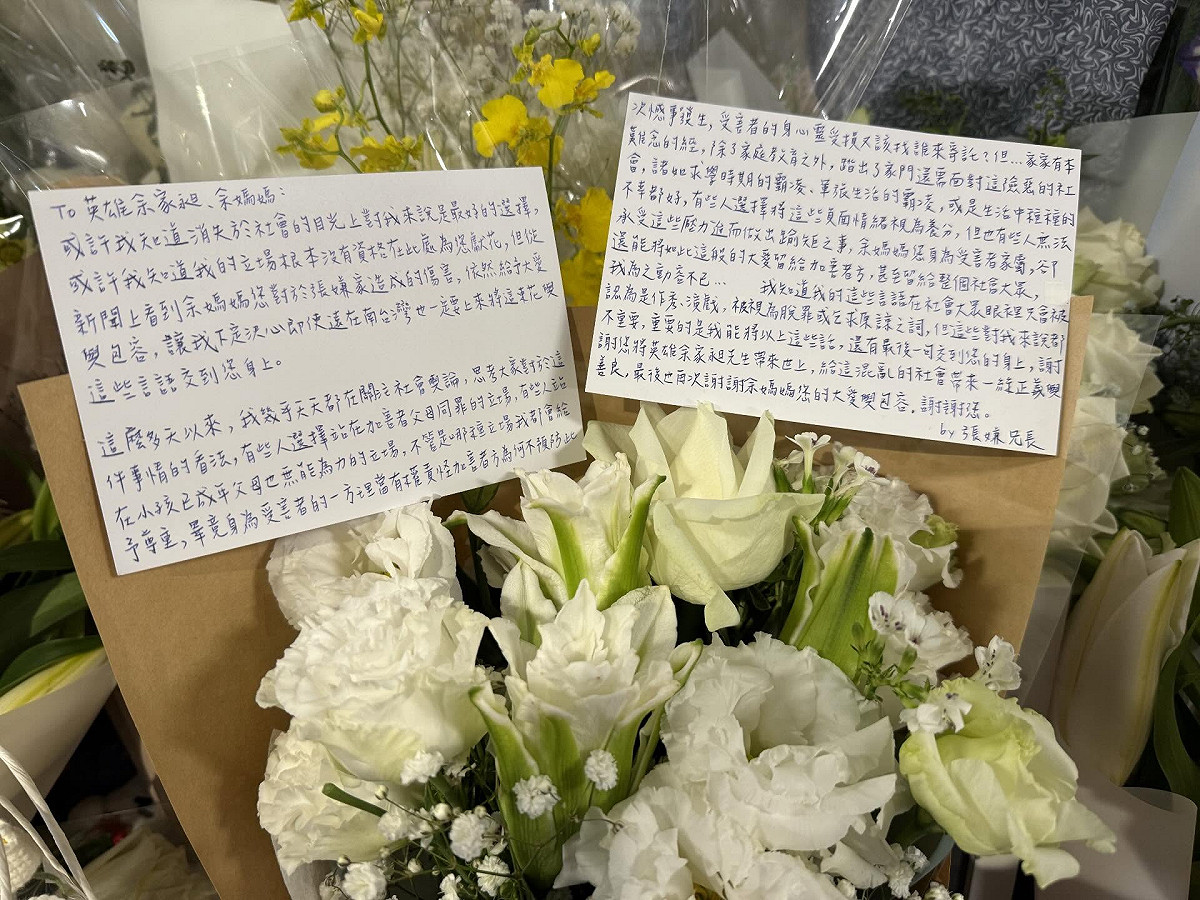 To 英雄余家昶、余媽媽：
或許我知道消失於社會的目光上對我來說是最好的選擇，
或許我知道我的立場根本沒有資格在此處為您獻花，但從
新聞上看到余媽媽您對於張嫌家造成的傷害，依然給予大愛
與包容，讓我下定決心即便遠在南台灣也一定要上來將這束花與
這些言語交到您身上。
這麼多天以來，我幾乎天天都在關注社會輿論，思考大家對於這
件事情的看法，有些人選擇站在加害者父母同罪的立場，有些人站
在小孩已成年父母也無能為力的立場，不管是哪種立場我都會給
予尊重，畢竟身為受害者的一方理當有權責怪加害者方為何不預防此
次憾事發生，受害者的身心靈受損又該找誰來寄託？但…家家有本
難念的經，除了家庭教育之外，踏出了家門還需面對這險惡的社
會，諸如求學時期的霸凌、軍張生活的霸凌，或是生活中種種的
不幸都好，有些人選擇將這些負面情緒視為養分，但也有些人無法
承受這些壓力進而做出踰矩之事，余媽媽您身為受害者家屬，卻
還能將如此這般的大愛留給加害者方，甚至留給整個社會大眾，
我為之動容不已… 我知道我的這些言語在社會大眾眼裡只會被
認為是作秀、演戲，被視為脫罪或乞求原諒之詞，但這些對我來說都
不重要，重要的是我能將以上這些話，還有最後一句交到您的身上，謝
謝您將英雄余家昶先生帶來世上，給這混亂的社會帶來一絲正義與
善良，最後也再次謝謝余媽媽您的大愛與包容。謝謝您。
by 張嫌兄長